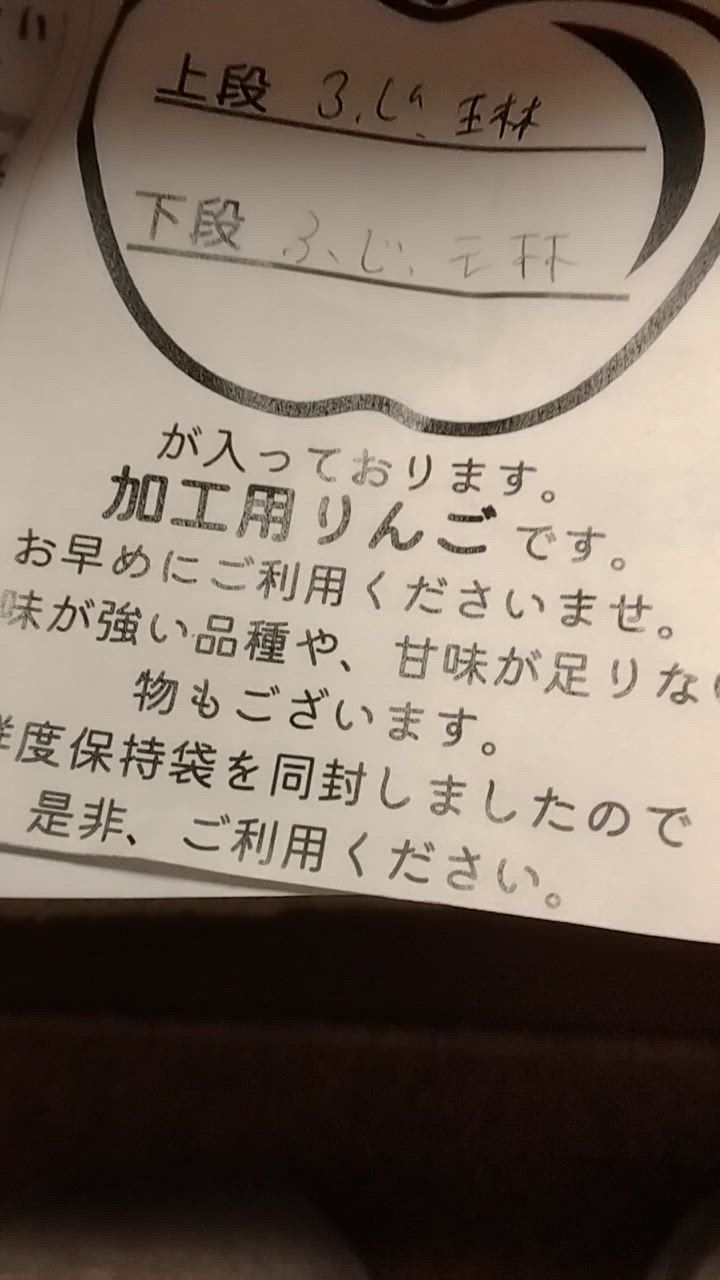 上段 ふじ、王林
下段 ふじ、王林
が入っております。
加工用りんごです。
お早めにご利用くださいませ。
味が強い品種や、甘味が足りな
物もございます。
度保持袋を同封しましたので
是非、ご利用ください。